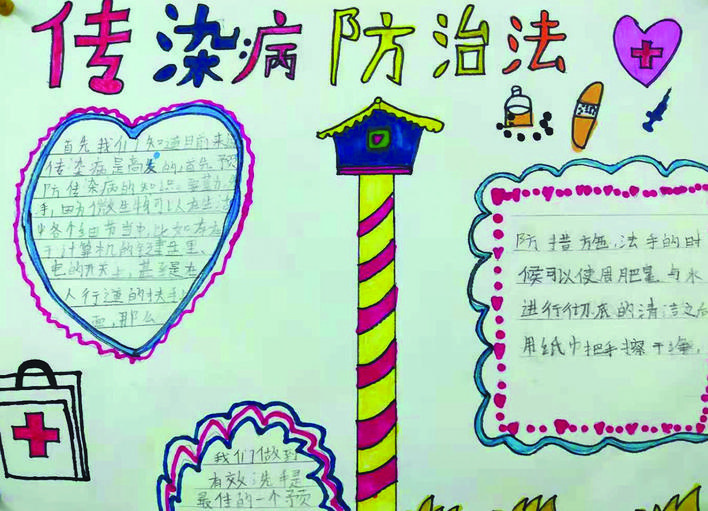 传染病防治法
首先我们知道目前来说
传染病是高发的,首先预
防传染病的知识要勤洗
手,因为微生物可以在生活
中各个细节当中,比如存在
于计算机的键盘里、
电的开关上,甚至是在
人行道的扶手
面,那么
防措施,法手的时
候可以使用肥皂与水
进行彻底的清洁之后
用纸巾把手擦干净,
我们做到
有效洗手是
最佳的一个预